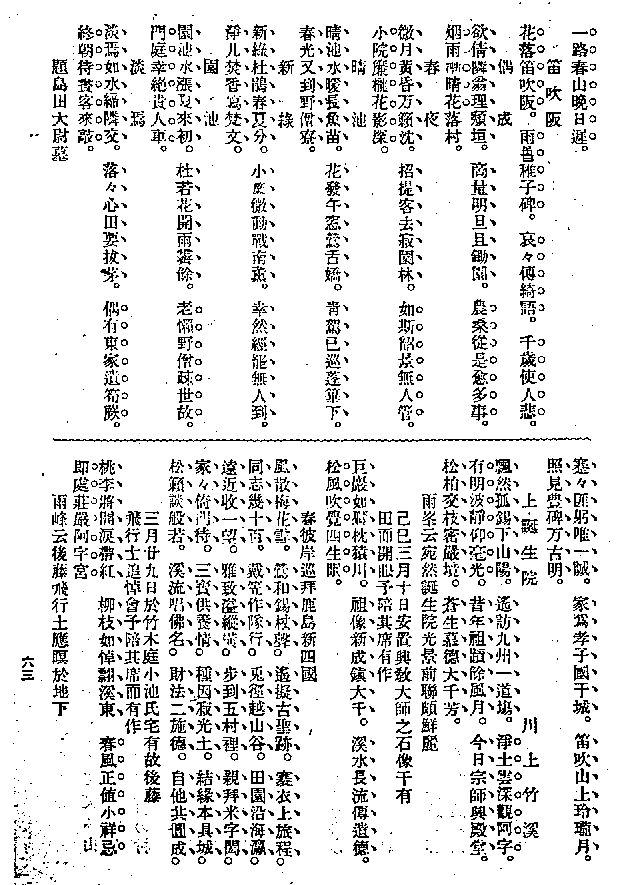 一路春山晚日遲。
笛吹阪
花落笛吹阪。雨昏稚子碑。哀々傳綺語。千歲使人悲。
偶成
欲倩隣翁理頽垣。商量明旦且鋤園。農桑從是愈多事。
烟雨晴花落村。
春夜
微月黃昏万籟沈。招提客去寂園林。如斯韶景無人管。
小院簾櫳花影深。
晴池
晴池水暖長魚苗。花發午窓鶯舌嬌。青駕已巡蓬篳下。
春光又到野僧寮。
新綠
新綠杜鵑春夏分。小庭微動戰南薰。幸然經龕無人到。
淨几焚香寫梵文。
園池
園池水漲夏來初。杜若花開雨霽餘。老懶野僧疎世故。
門庭幸絕貴人車。
淡焉
淡焉如水締隣交。落々心田要拔茅。偶有東家遺筍蕨。
終朝待客來敲。
題島田大尉墓
蹇々匪躬唯一誠。家爲孝子國干城。笛吹山上玲瓏月。
照見豊碑万古明。
上誕生院 川上竹溪
飄然孤錫下山陽。遙訪九州一道場。淨土雲深觀阿字。
有明波靜仰毫光。昔年祖蹟餘風月。今日宗師興殿堂。
松柏交枝密嚴境。蒼生慕德大千芳。
雨峯云宛然誕生院光景前聯頗鮮麗
己巳三月十日安置興敎大師之石像干有
田而開眼予陪其席有作
巨巖如屛枕猿川。祖像新成鎮大千。溪水長流傳道德。
松風吹覺四生眠。
春彼岸巡拜鹿島新四國
風散梅花雪。鶯和錫杖聲。遙擬古聖跡。裹衣上旅程。
同志幾十百。戴笠作隊行。兎徑越山谷。田園沿海瀛。
遠近收一望。雅致溢縱橫。步到五村裡。親拜米字閎。
家々倚門待。三寳供養情。種因寂光土。結緣本具城。
松籟談般若。溪流唱佛名。財法二施德。自他共圓成。
三月廿九日於竹木庭小池氏宅有故後藤
飛行士追悼會予陪其席而有作
桃李將開淚帶紅。柳枝如悼翻溪東。春風正値小祥忌。
即處莊嚴阿字宮。
雨峰云後藤飛行士應瞑於地下
六三